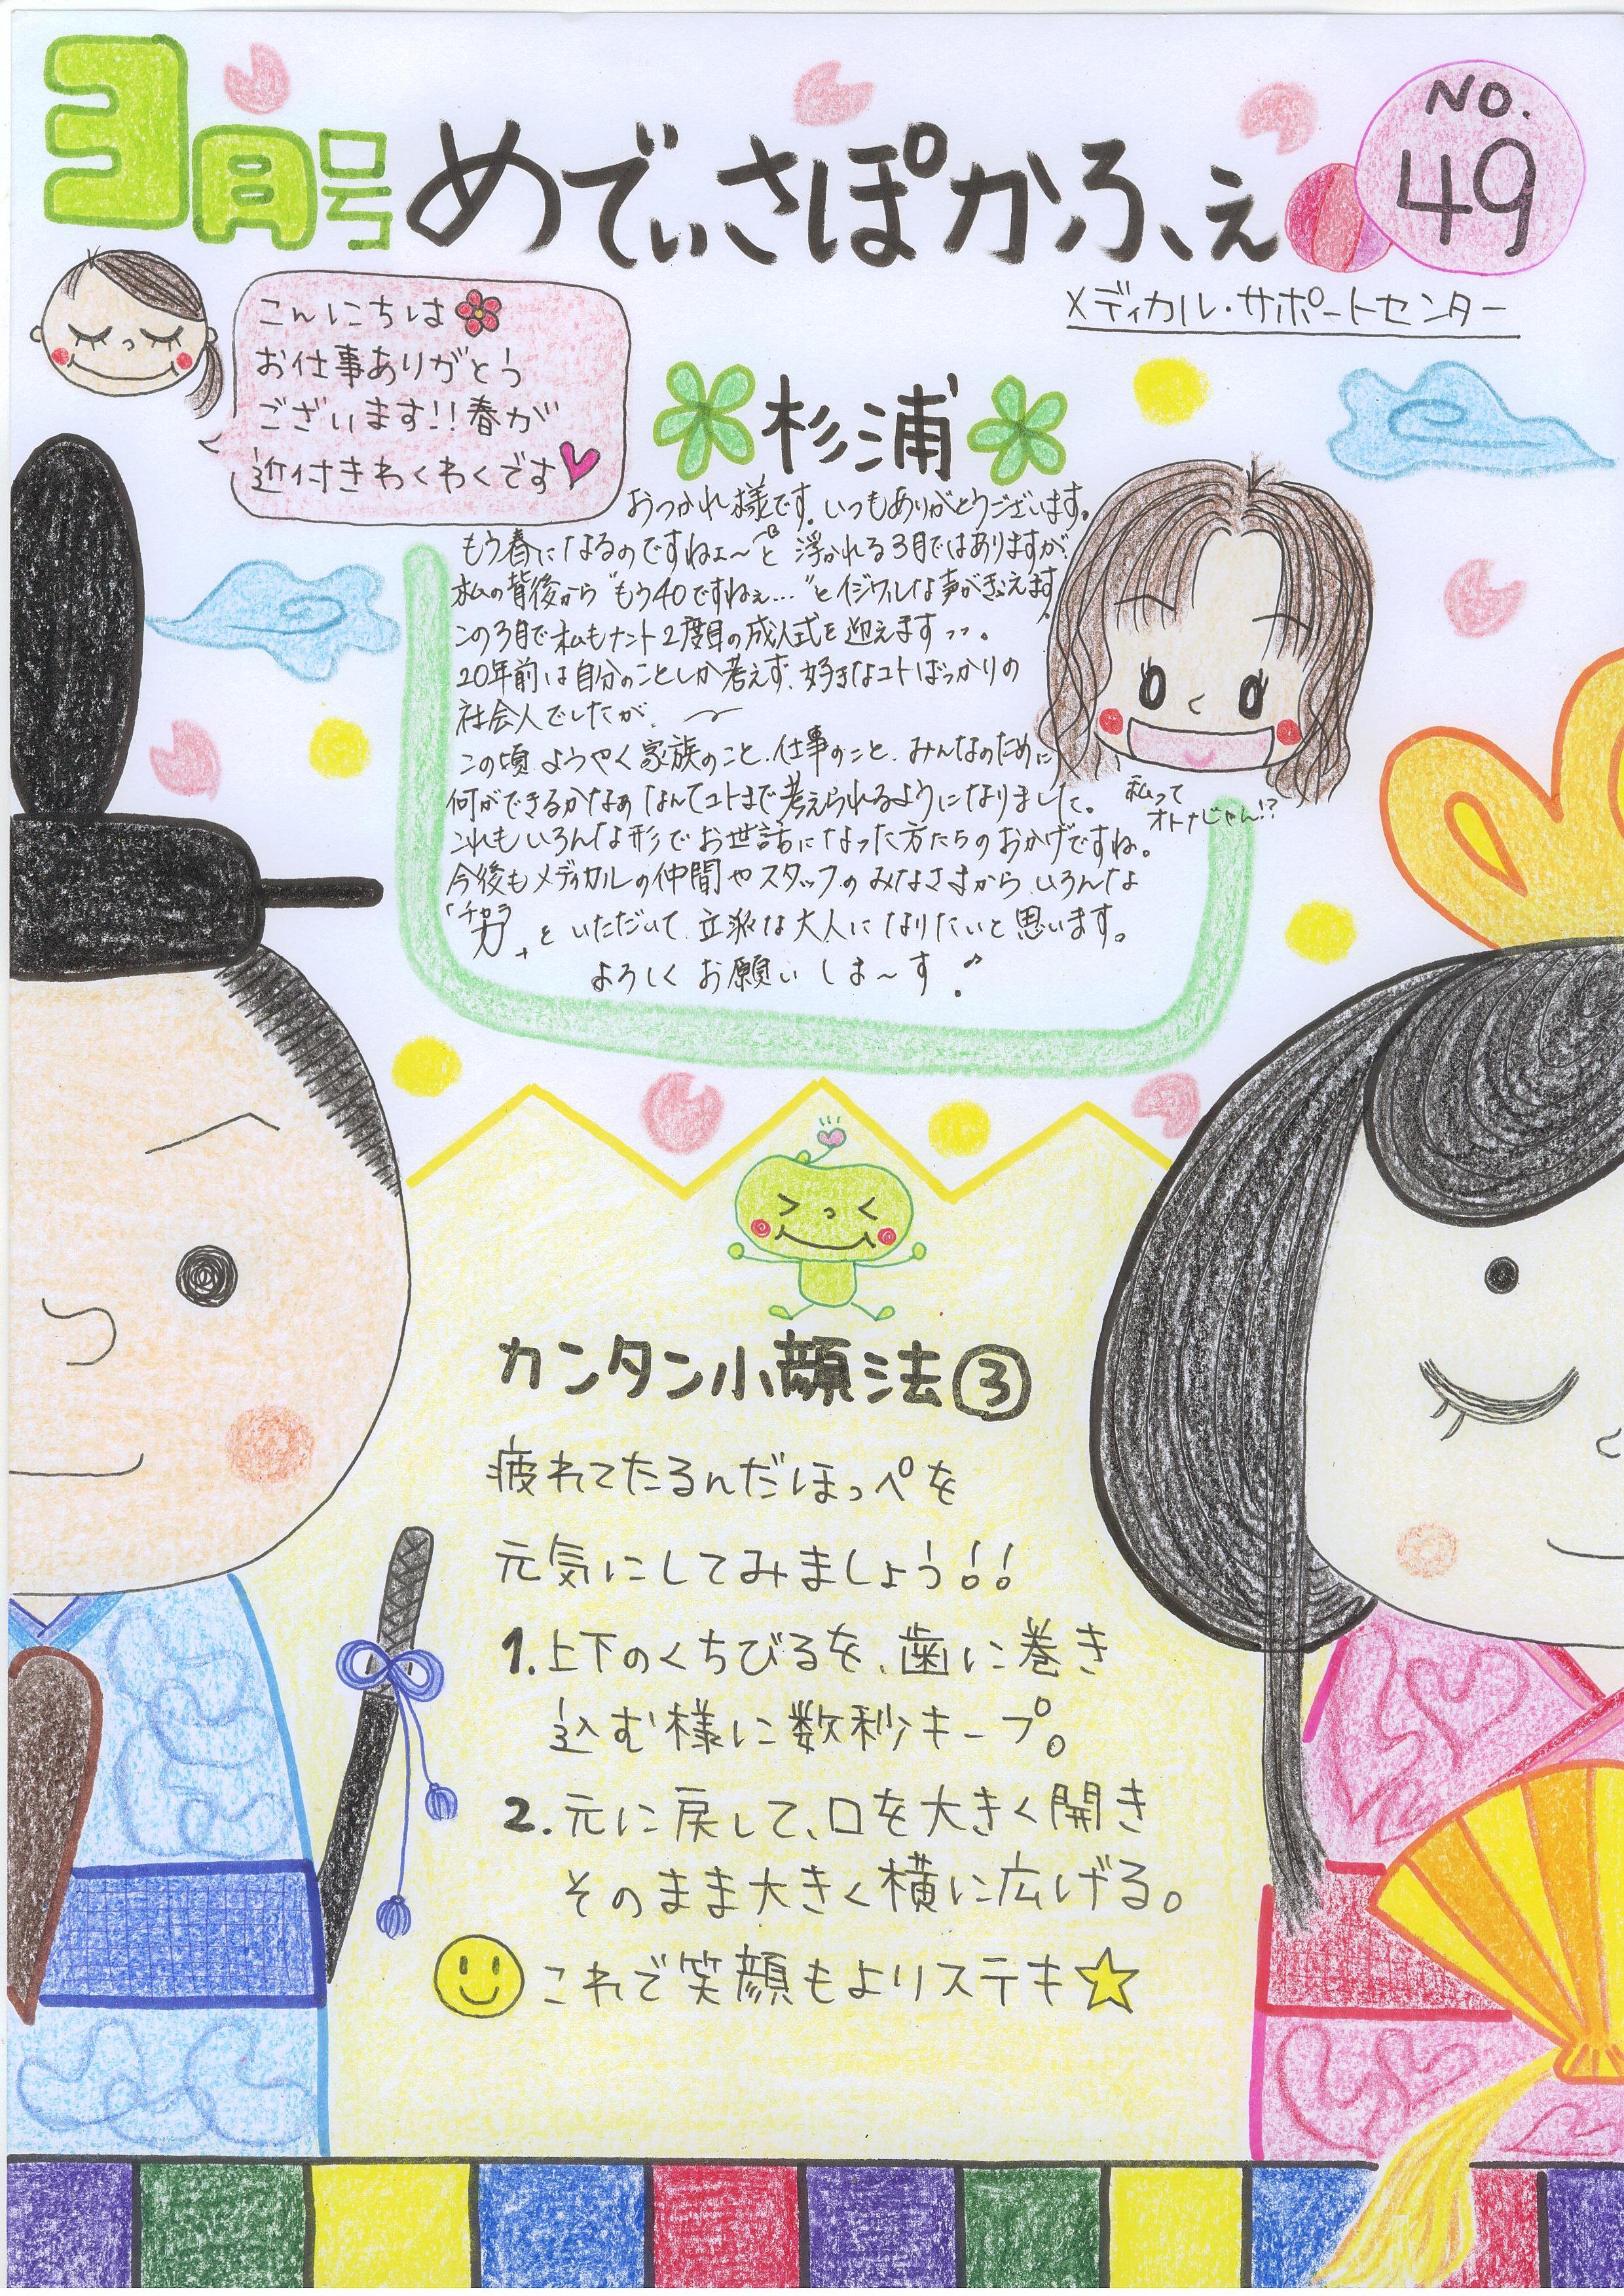 3月号
めでぃさぽかふぇ
NO.
49
メディカル・サポートセンター
こんにちは
お仕事ありがとう
ございます!!春が
近付きわくわくです
杉浦
おつかれ様です。いつもありがとうございます。
もう春になるのですねェ〜と 浮かれる3月ではありますが、
私の背後から"もう40ですねぇ…"とイジワルな事がきこえます。
この3月で私もナント2度目の成人式を迎えます
20年前は自分のことしか考えず、好きなコトばっかりの
社会人でしたが、
この頃ようやく家族のこと、仕事のこと、みんなのために
何ができるかなぁなんてコトまで考えられるようになりました。
私って
オトナじゃん!?
これもいろんな形でお世話になった方たちのおかげですね。
今後もメディカルの仲間やスタッフのみなさまから、いろんな
「チカラ
力」をいただいて、立派な大人になりたいと思います。
よろしくお願いしま〜す♪
カンタン小顔法③
疲れてたるんだほっぺを
元気にしてみましょう!!
1.上下のくちびるを、歯に巻き
込む様に数秒キープ。
2.元に戻して、口を大きく開き
そのまま大きく横に広げる。
これで笑顔もよりステキ☆